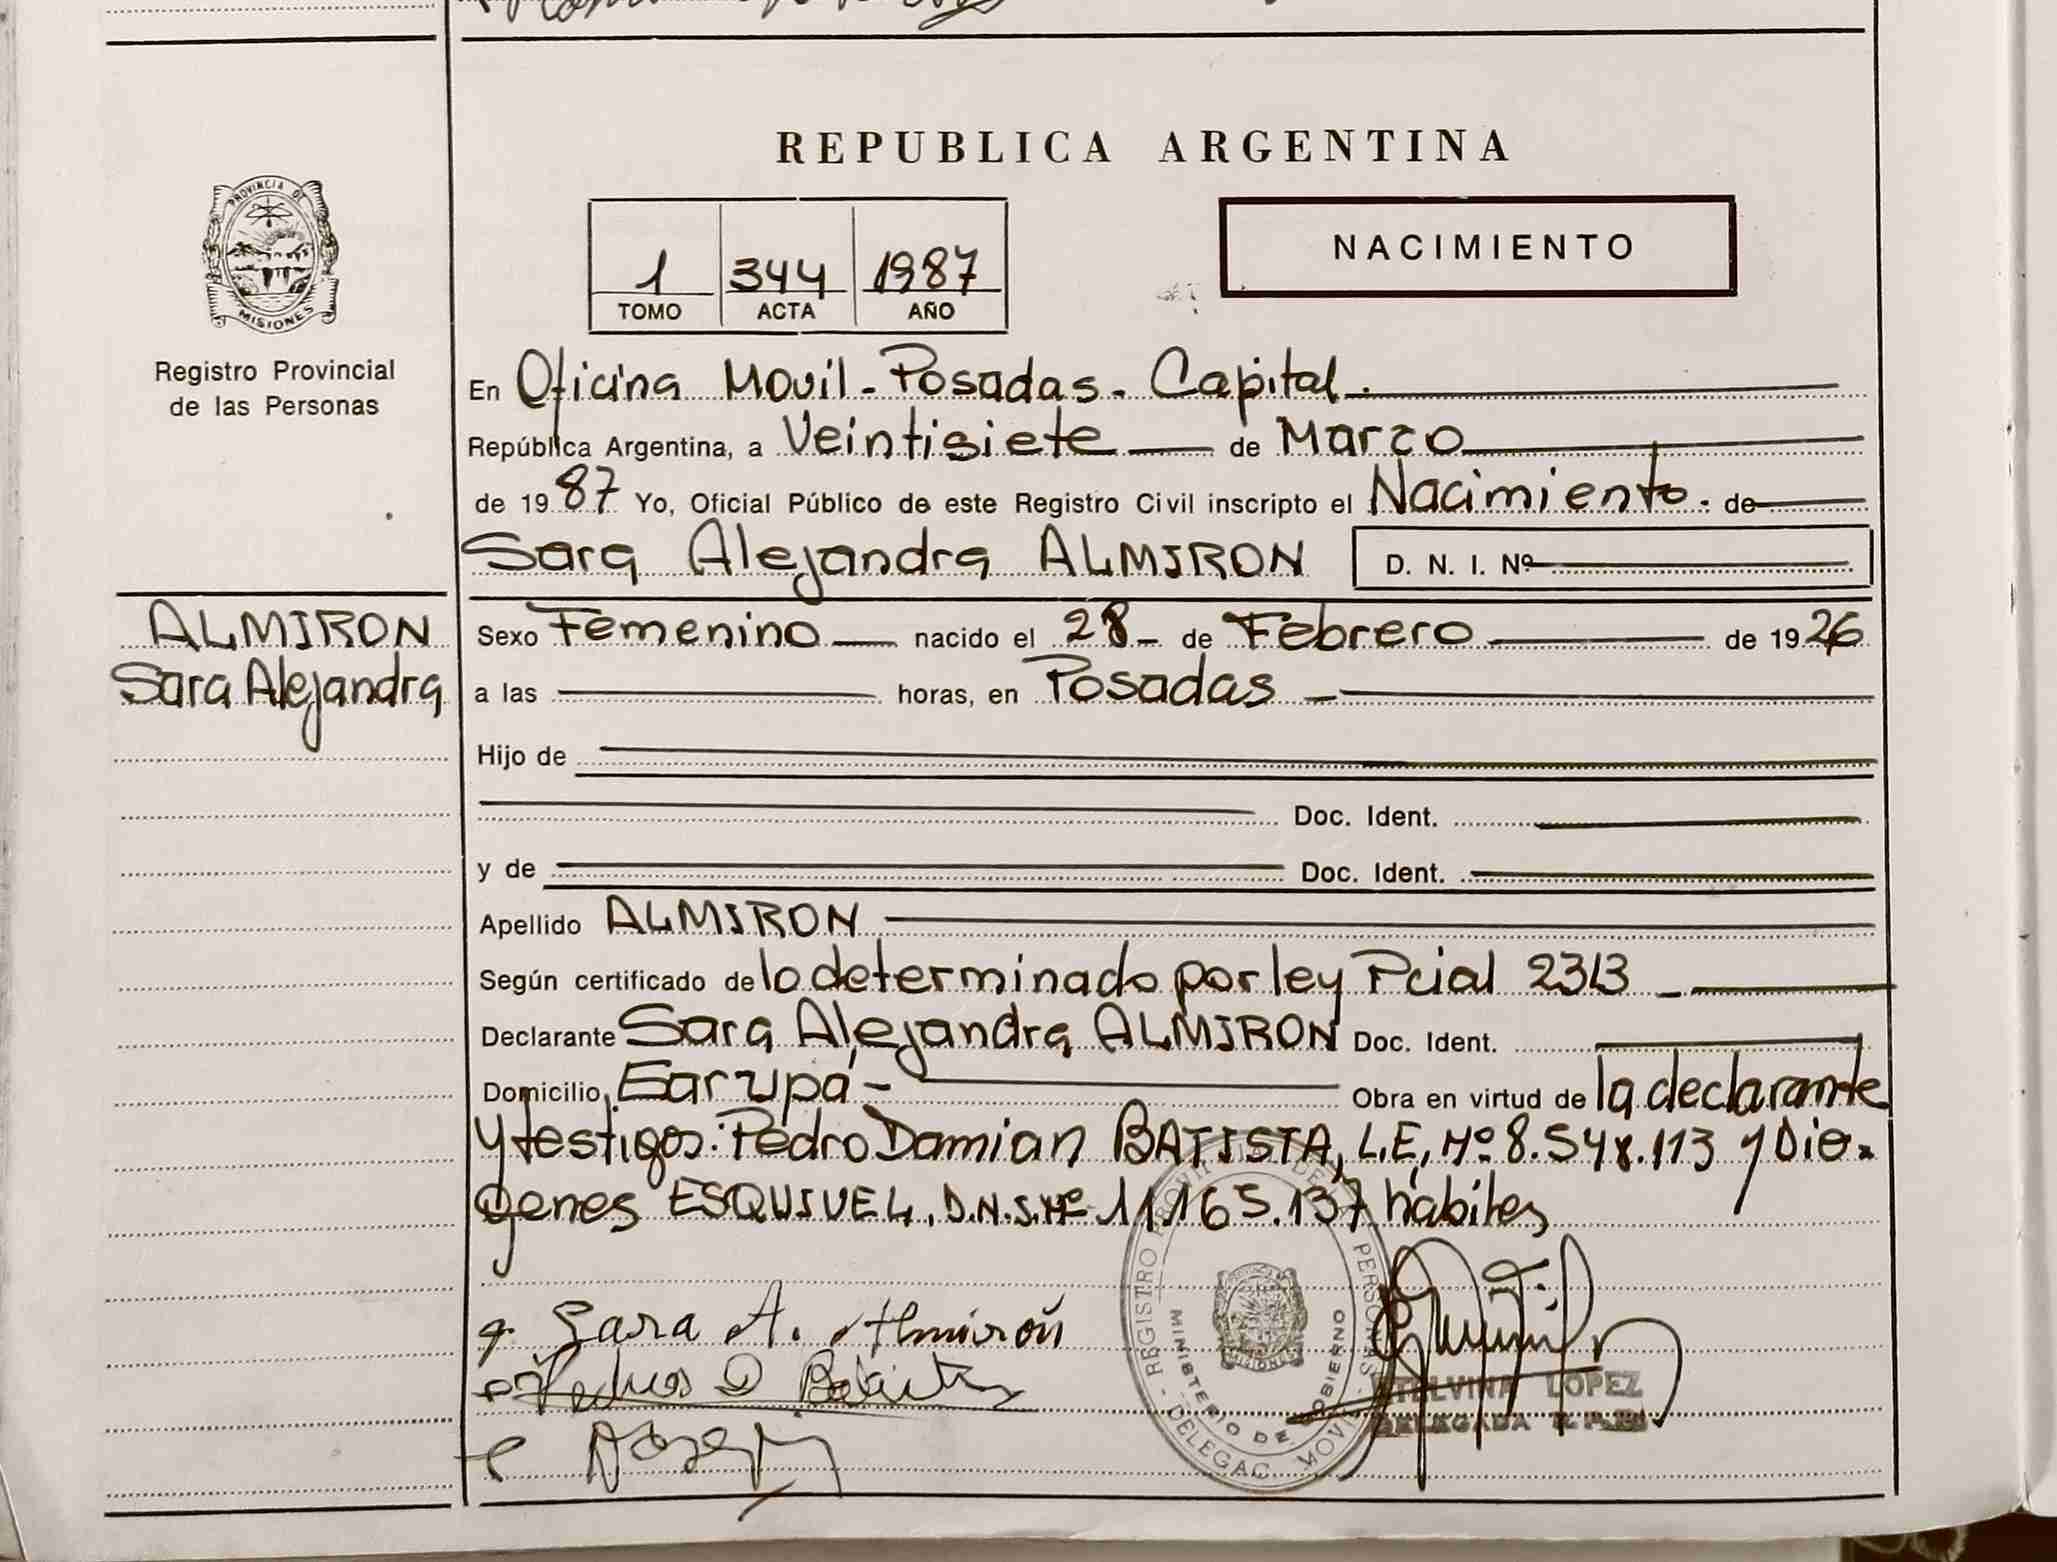 REPUBLICA ARGENTINA
PROVINCIA DE
MISIONES
Registro Provincial
de las Personas
1 344 1987
TOMO ACTA AÑO
NACIMIENTO
En Oficina Movil - Posadas - Capital.
República Argentina, a Veintisiete de Marzo
de 1987 Yo, Oficial Público de este Registro Civil inscripto el Nacimiento. de
Sara Alejandra ALMIRON D. N. I. Nº
ALMIRON
Sara Alejandra
Sexo Femenino nacido el 28 - de Febrero de 1926
a las horas, en Posadas
Hijo de
Doc. Ident.
y de Doc. Ident.
Apellido ALMIRON
Según certificado de lo determinado por ley Pcial 2313
Declarante Sara Alejandra ALMIRON Doc. Ident.
Domicilio Garupá - Obra en virtud de la declarante
y testigos: Pedro Damian BATISTA, L.E, Nº 8.548.113 y Dio-
genes ESQUIVEL, D.N.I. Nº 11.165.137 hábiles
Sara A. Almirón
REGISTRO PROVINCIAL DE LAS PERSONAS - DELEGAC. MOVIL -
MINISTERIO DE GOBIERNO
MISIONES
ETELVINA LOPEZ
DELEGADA R. P.